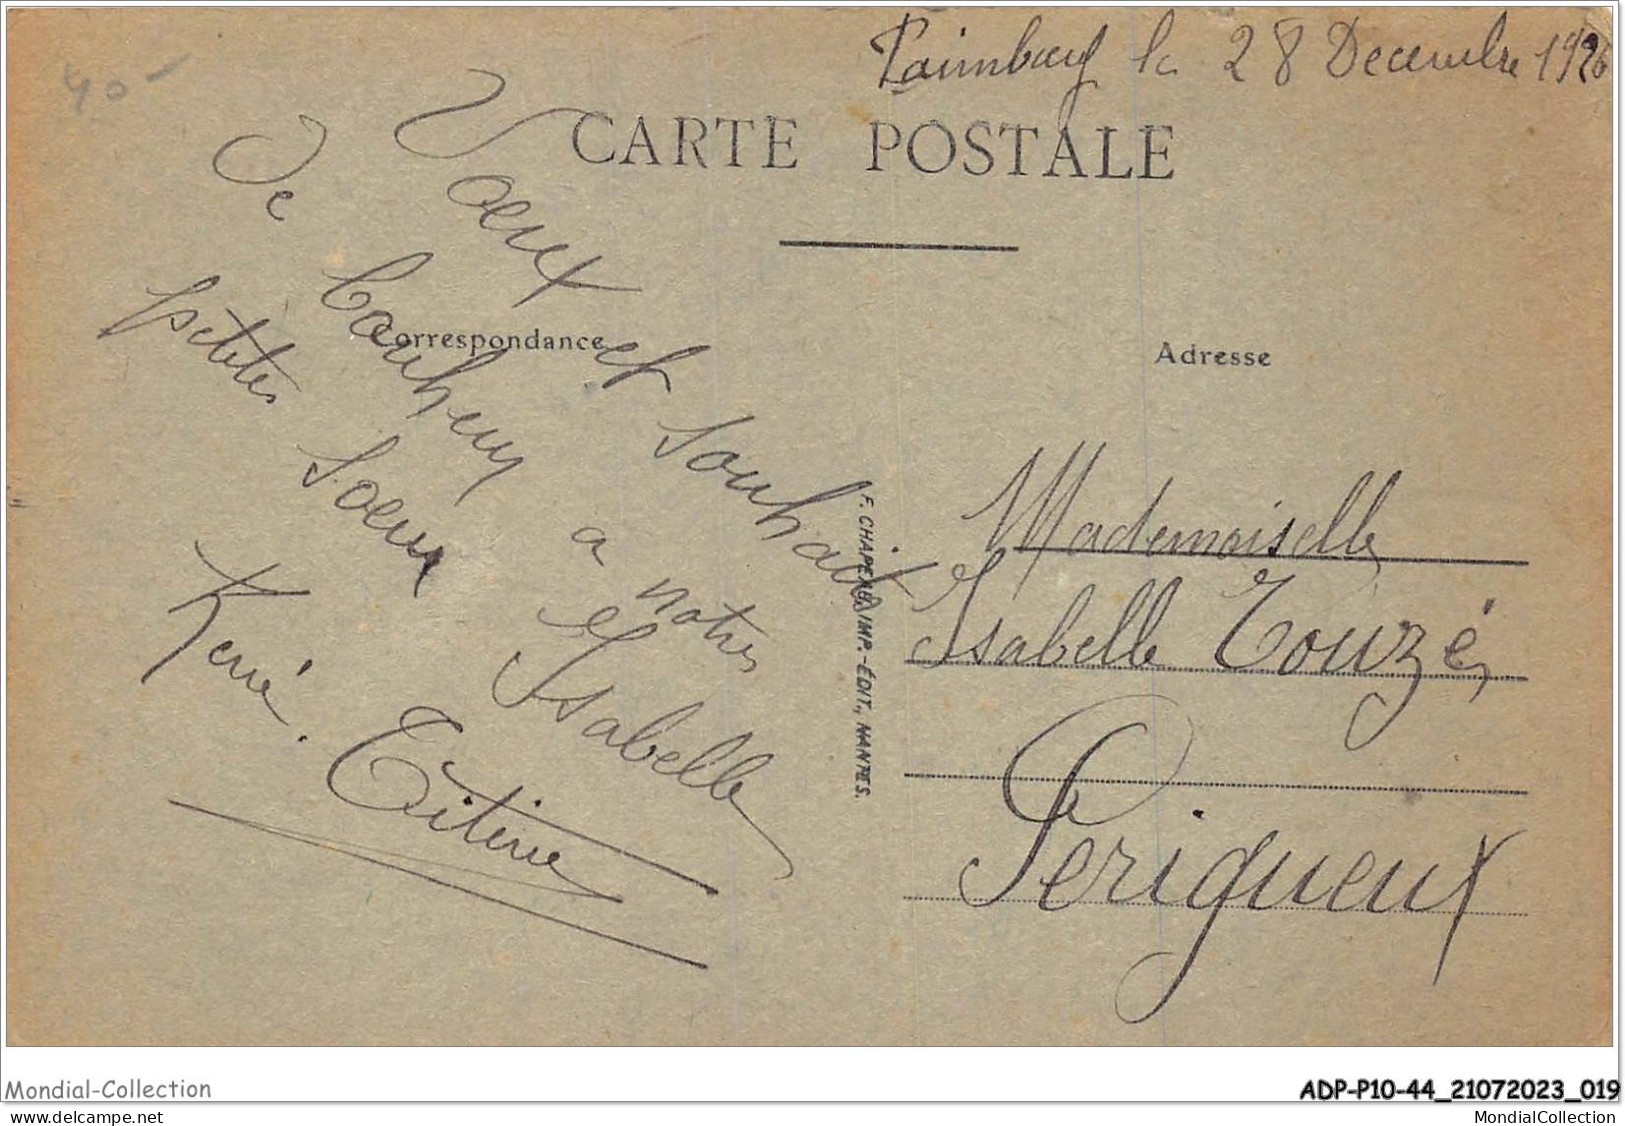 40-
Paimbœuf le 28 Decembre 1926
CARTE POSTALE
Correspondance
Adresse
Voeux et Souhaits
De bonheur a notre
petites Soeur Isabelle
René. Titine
F. CHAPEAU, IMP.-ÉDIT., NANTES.
Mademoiselle
Isabelle Touzé,
Perigueux
Mondial-Collection
ADP-P10-44_21072023_019
www.delcampe.net
MondialCollection